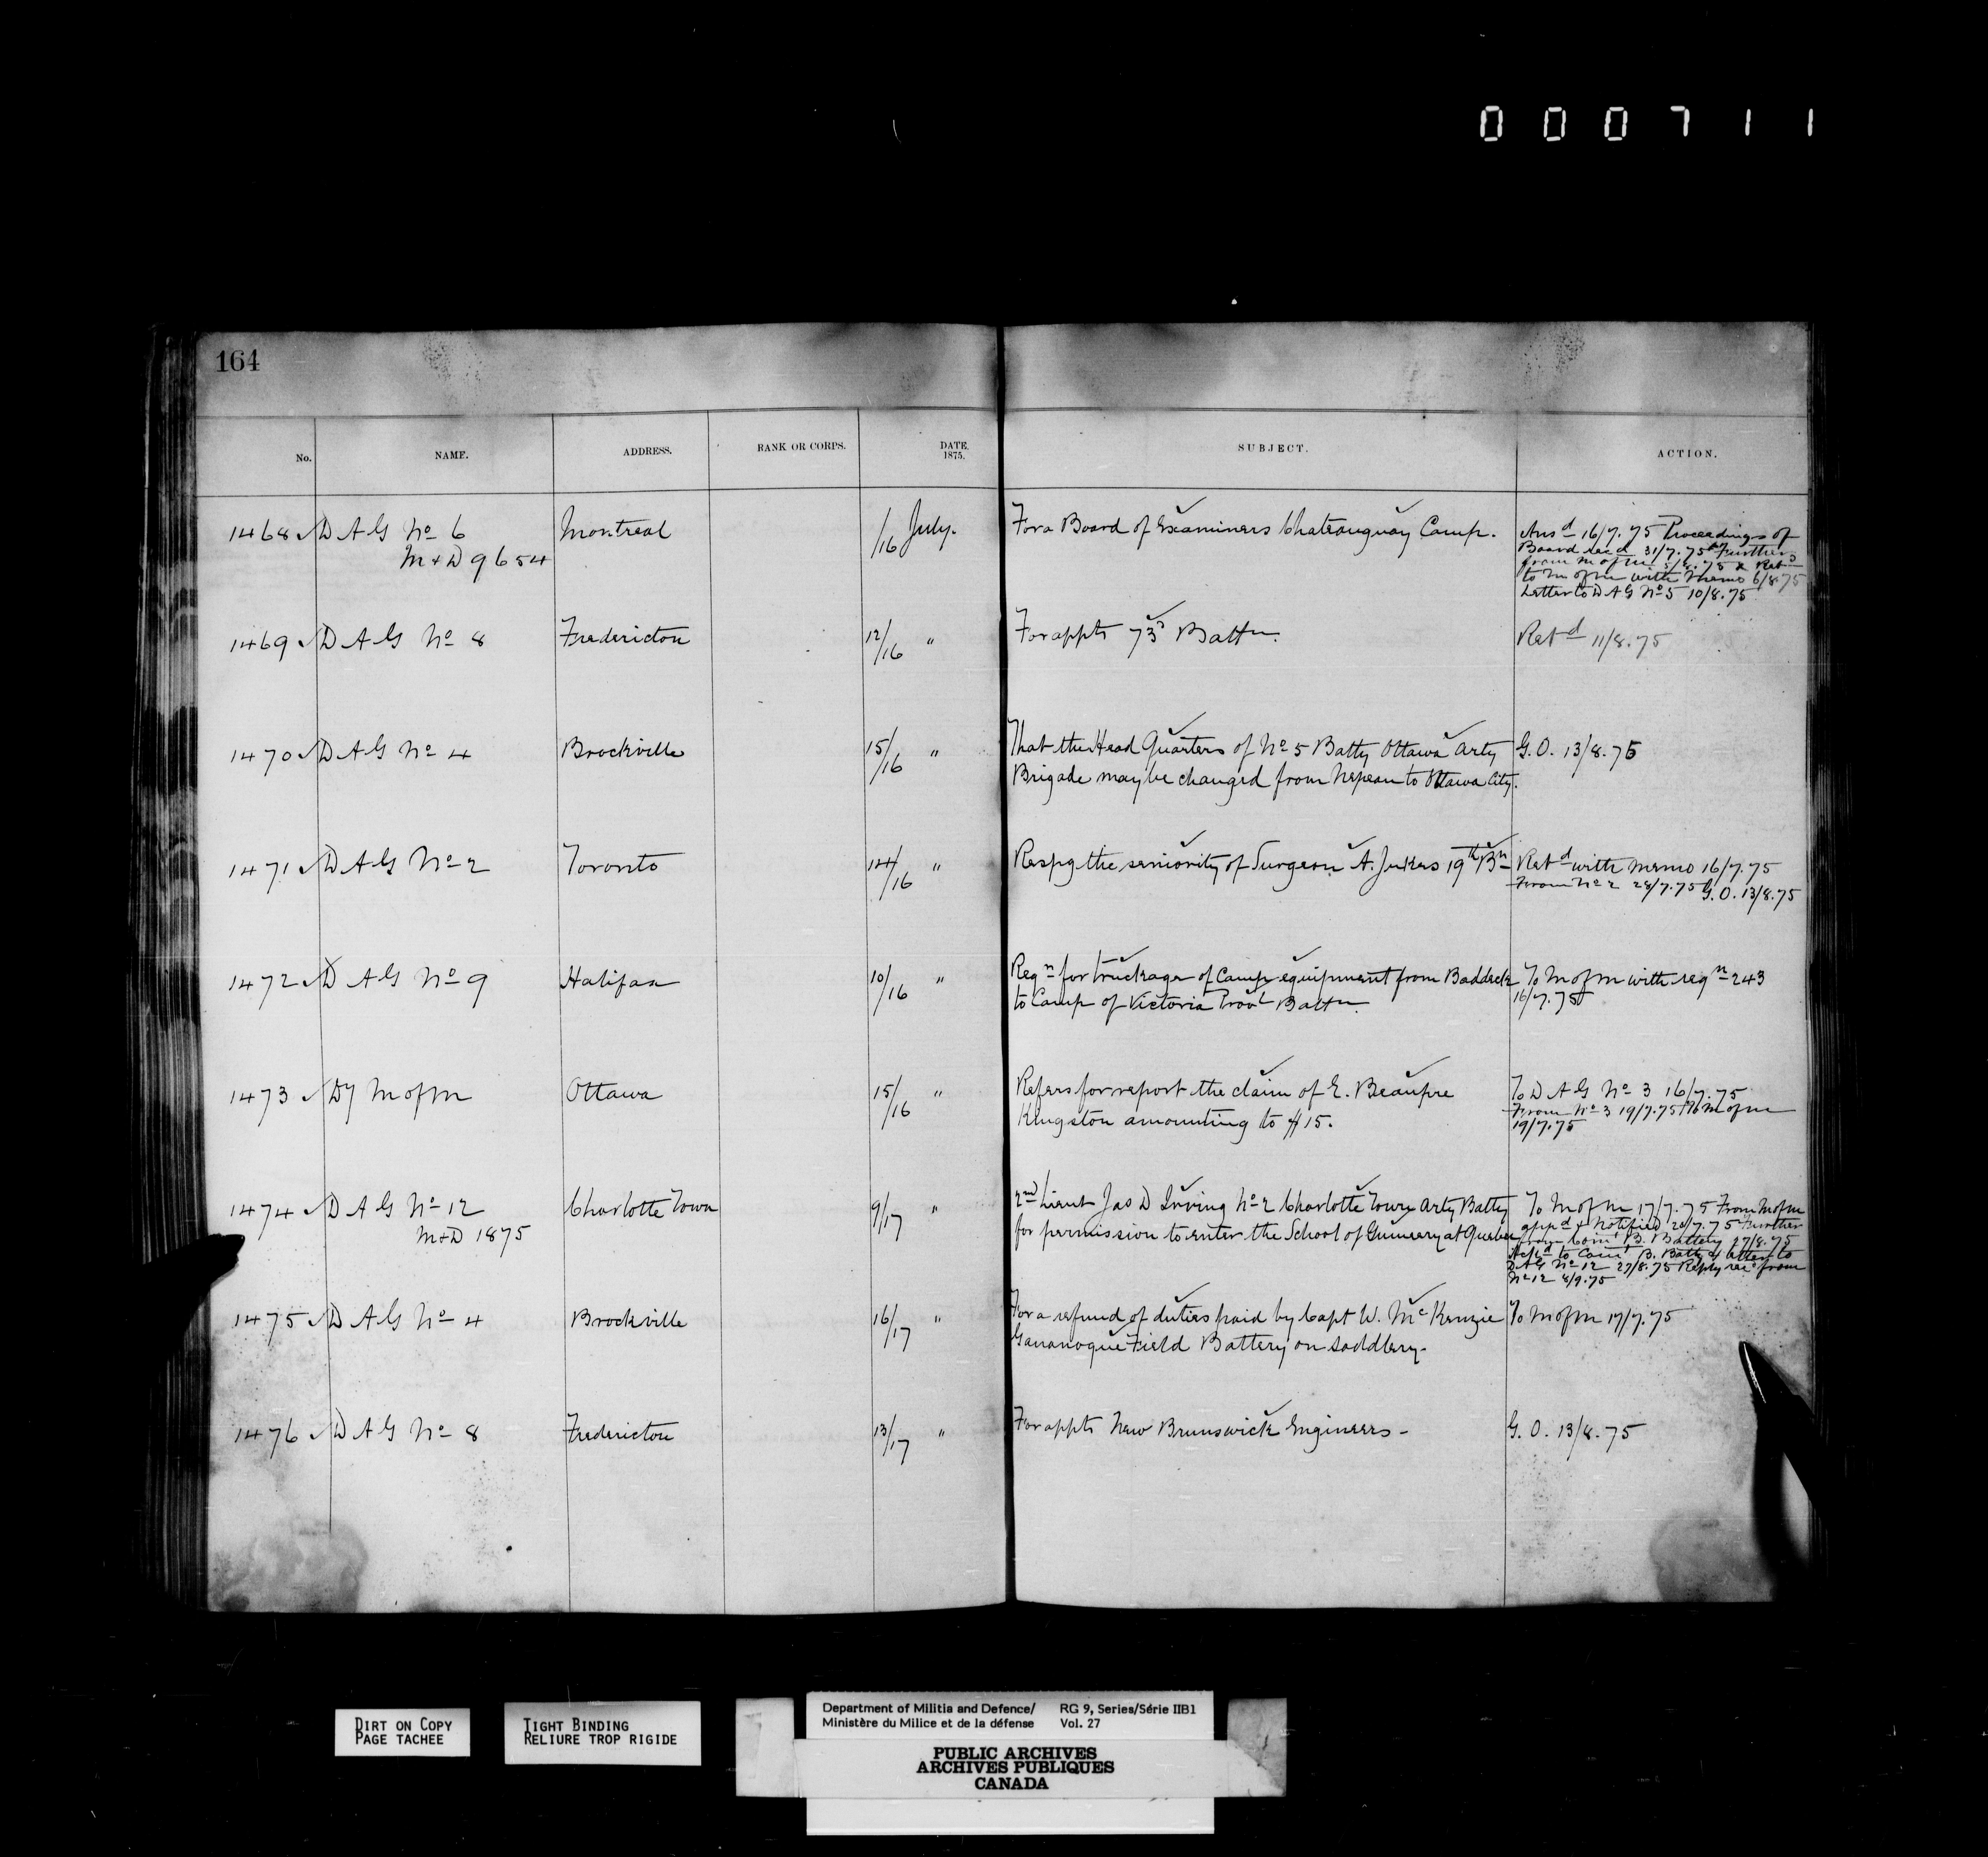 000711
164
No. NAME. ADDRESS. RANK OR CORPS. DATE. 1875. SUBJECT. ACTION.
1468 D A G No 6 Montreal /16 July. For a Board of Examiners Chateauguay Camp. Ansd 16/7.75 Proceedings of
M + D 9654 Board recd 31/7.75 Further
from M of M 5/8.75 & Retd
to M of M with Memo 6/8.75
Letter to D A G No 5 10/8.75
1469 D A G No 8 Fredericton 12/16 " For appts 73d Battn. Retd 11/8.75
1470 D A G No 4 Brockville 15/16 " That the Head Quarters of No 5 Batty Ottawa Arty G.O. 13/8.75
Brigade may be changed from Nepean to Ottawa City.
1471 D A G No 2 Toronto 14/16 " Respg the seniority of Surgeon A. Jukes 19th Bn Retd with Memo 16/7.75
From No 2 28/7.75 G.O. 13/8.75
1472 D A G No 9 Halifax 10/16 " Reqn for truckage of Camp equipment from Baddeck To M of M with reqn 243
to Camp of Victoria Provl Battn. 16/7.75
1473 Dy M of M Ottawa 15/16 " Refers for report the claim of E. Beaupre To D A G No 3 16/7.75
Kingston amounting to $15. From No 3 19/7.75 To M of M
19/7.75
1474 D A G No 12 Charlotte Town 9/17 " 2nd Lieut Jas D Irving No 2 Charlotte Town Arty Batty To M of M 17/7.75 From M of M
M+D 1875 for permission to enter the School of Gunnery at Quebec appd & Notified 20/7.75 Further
from Comt B. Battery 27/8.75
to Comt B. Batty & letter to
D A G No 12 27/8.75 Reply recd from
No 12 8/9.75
1475 D A G No 4 Brockville 16/17 " For a refund of duties paid by Capt W. McKenzie To M of M 17/7.75
Gananoque Field Battery on saddlery.
1476 D A G No 8 Fredericton 13/17 " For appts New Brunswick Engineers - G.O. 13/8.75
DIRT ON COPY
PAGE TACHEE
TIGHT BINDING
RELIURE TROP RIGIDE
Department of Militia and Defence/ RG 9, Series/Série IIB1
Ministère du Milice et de la défense Vol. 27
PUBLIC ARCHIVES
ARCHIVES PUBLIQUES
CANADA